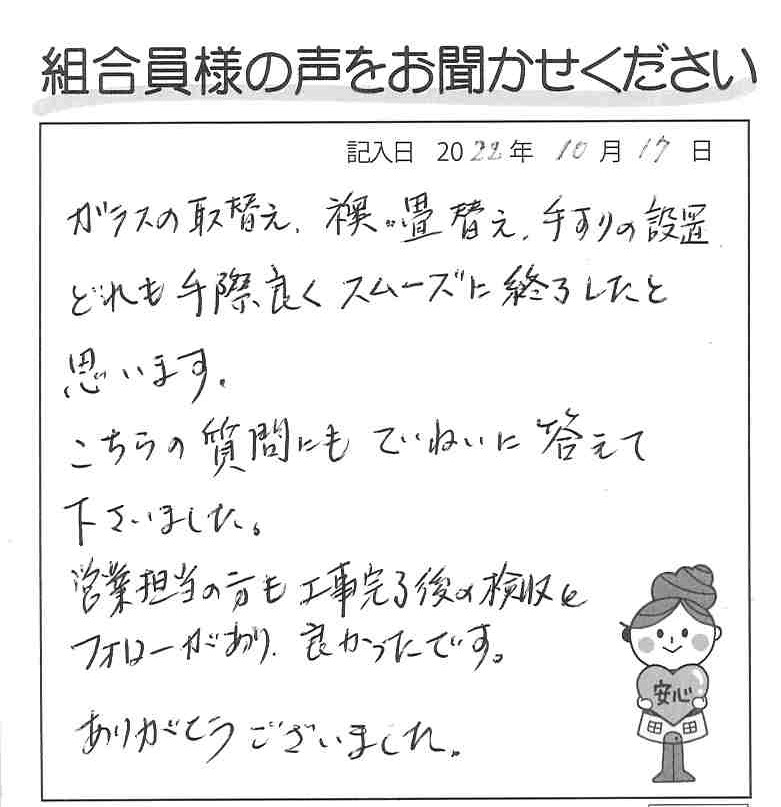 組合員様の声をお聞かせください
記入日 2022年 10月 17日
ガラスの取替え、襖・畳替え、手すりの設置
どれも手際良くスムーズに終了したと
思います。
こちらの質問にも ていねいに 答えて
下さいました。
営業担当の方も工事完了後の検収と
フォローがあり、良かったです。
ありがとうございました。
安心